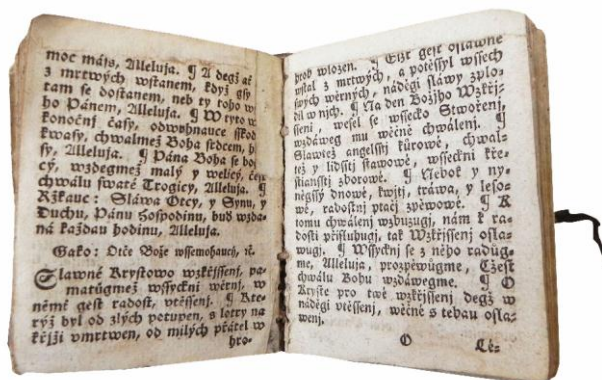 moc máſs, Alleluja. ¶ A degž ať
z mrtwých wſtanem, když gſy
tam ſe doſtanem, neb ty toho w
ho Pánem, Alleluja. ¶ W tyto w
konoční čaſy, odwrhnauce
kwaſy, chwalmež Boha ſrdcem, hl
ſy, Alleluja. ¶ Pána Boha ſe boj
cý, wzdegmež malý y welicý,
chwálu ſwaté Trogicy, Alleluja. ¶
Ržkauc: Sláwa Otcy, y Synu, y
Duchu, Pánu Hoſpodinu, buď wzdá-
ná každau hodinu, Alleluja.
Gako: Otče Bože wſſemohaucý, ꝛč.
Slawné Kryſtowo wzkřjſſenj, pa-
matůgmež wſſyckni wěrnj, w
němž geſt radoſt, vtěſſenj. ¶ Kte-
rýž byl od zlých potupen, s lotry na
křjži vmrtwen, od milých přátel w
hro-
hrob wložen. ¶ Giž geſt oſlaweně
wſtal z mrtwých, a potěſſyl wſſech
ſwých wěrných, náděgi ſláwy zplo-
dil w nich. ¶ Na den Božjho Wzkřj-
ſſenj, weſel ſe wſſecko Stwořenj,
wzdáweg mu wěčné chwálenj. ¶
Slawtež angelſſtj kůrowé, chwal-
tež y lidſſtj ſtawowé, wſſeckni kře-
ſtianſſtj zborowé. ¶ Neboť y ny-
něgſſý dnowé, kwjtj, tráwa, y leſo-
wé, radoſtnj ptačj zpěwowé. ¶ K
tomu chwálenj wzbuzugj, nám k ra-
doſti přiſluhugj, tak Wzkřjſſenj oſla-
wugj. ¶ Wſſyckni ſe z něho radůg-
me, Alleluja, prozpěwůgme, Čzeſt
chwálu Bohu wzdáwegme. ¶ O
Kryſte pro twé wzkřjſſenj degž w
náděgi vtěſſenj, wěčně s tebau oſla-
wenj.
O Lé-